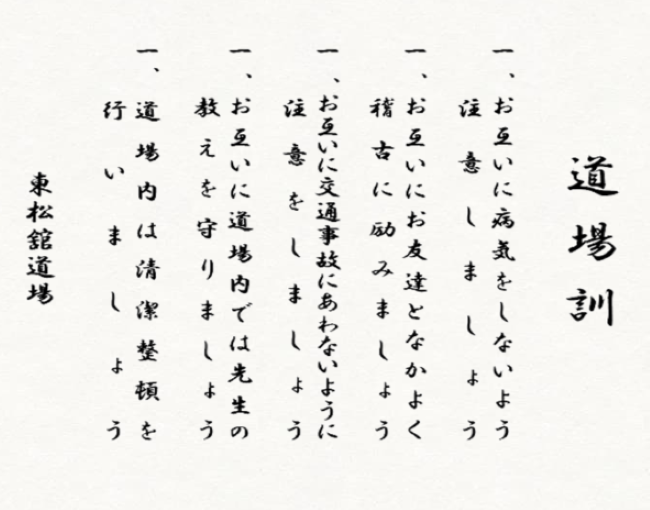 道場訓
一、お互いに病気をしないよう
注意しましょう
一、お互いにお友達となかよく
稽古に励みましょう
一、お互いに交通事故にあわないように
注意をしましょう
一、お互いに道場内では先生の
教えを守りましょう
一、道場内は清潔整頓を
行いましょう
東松舘道場